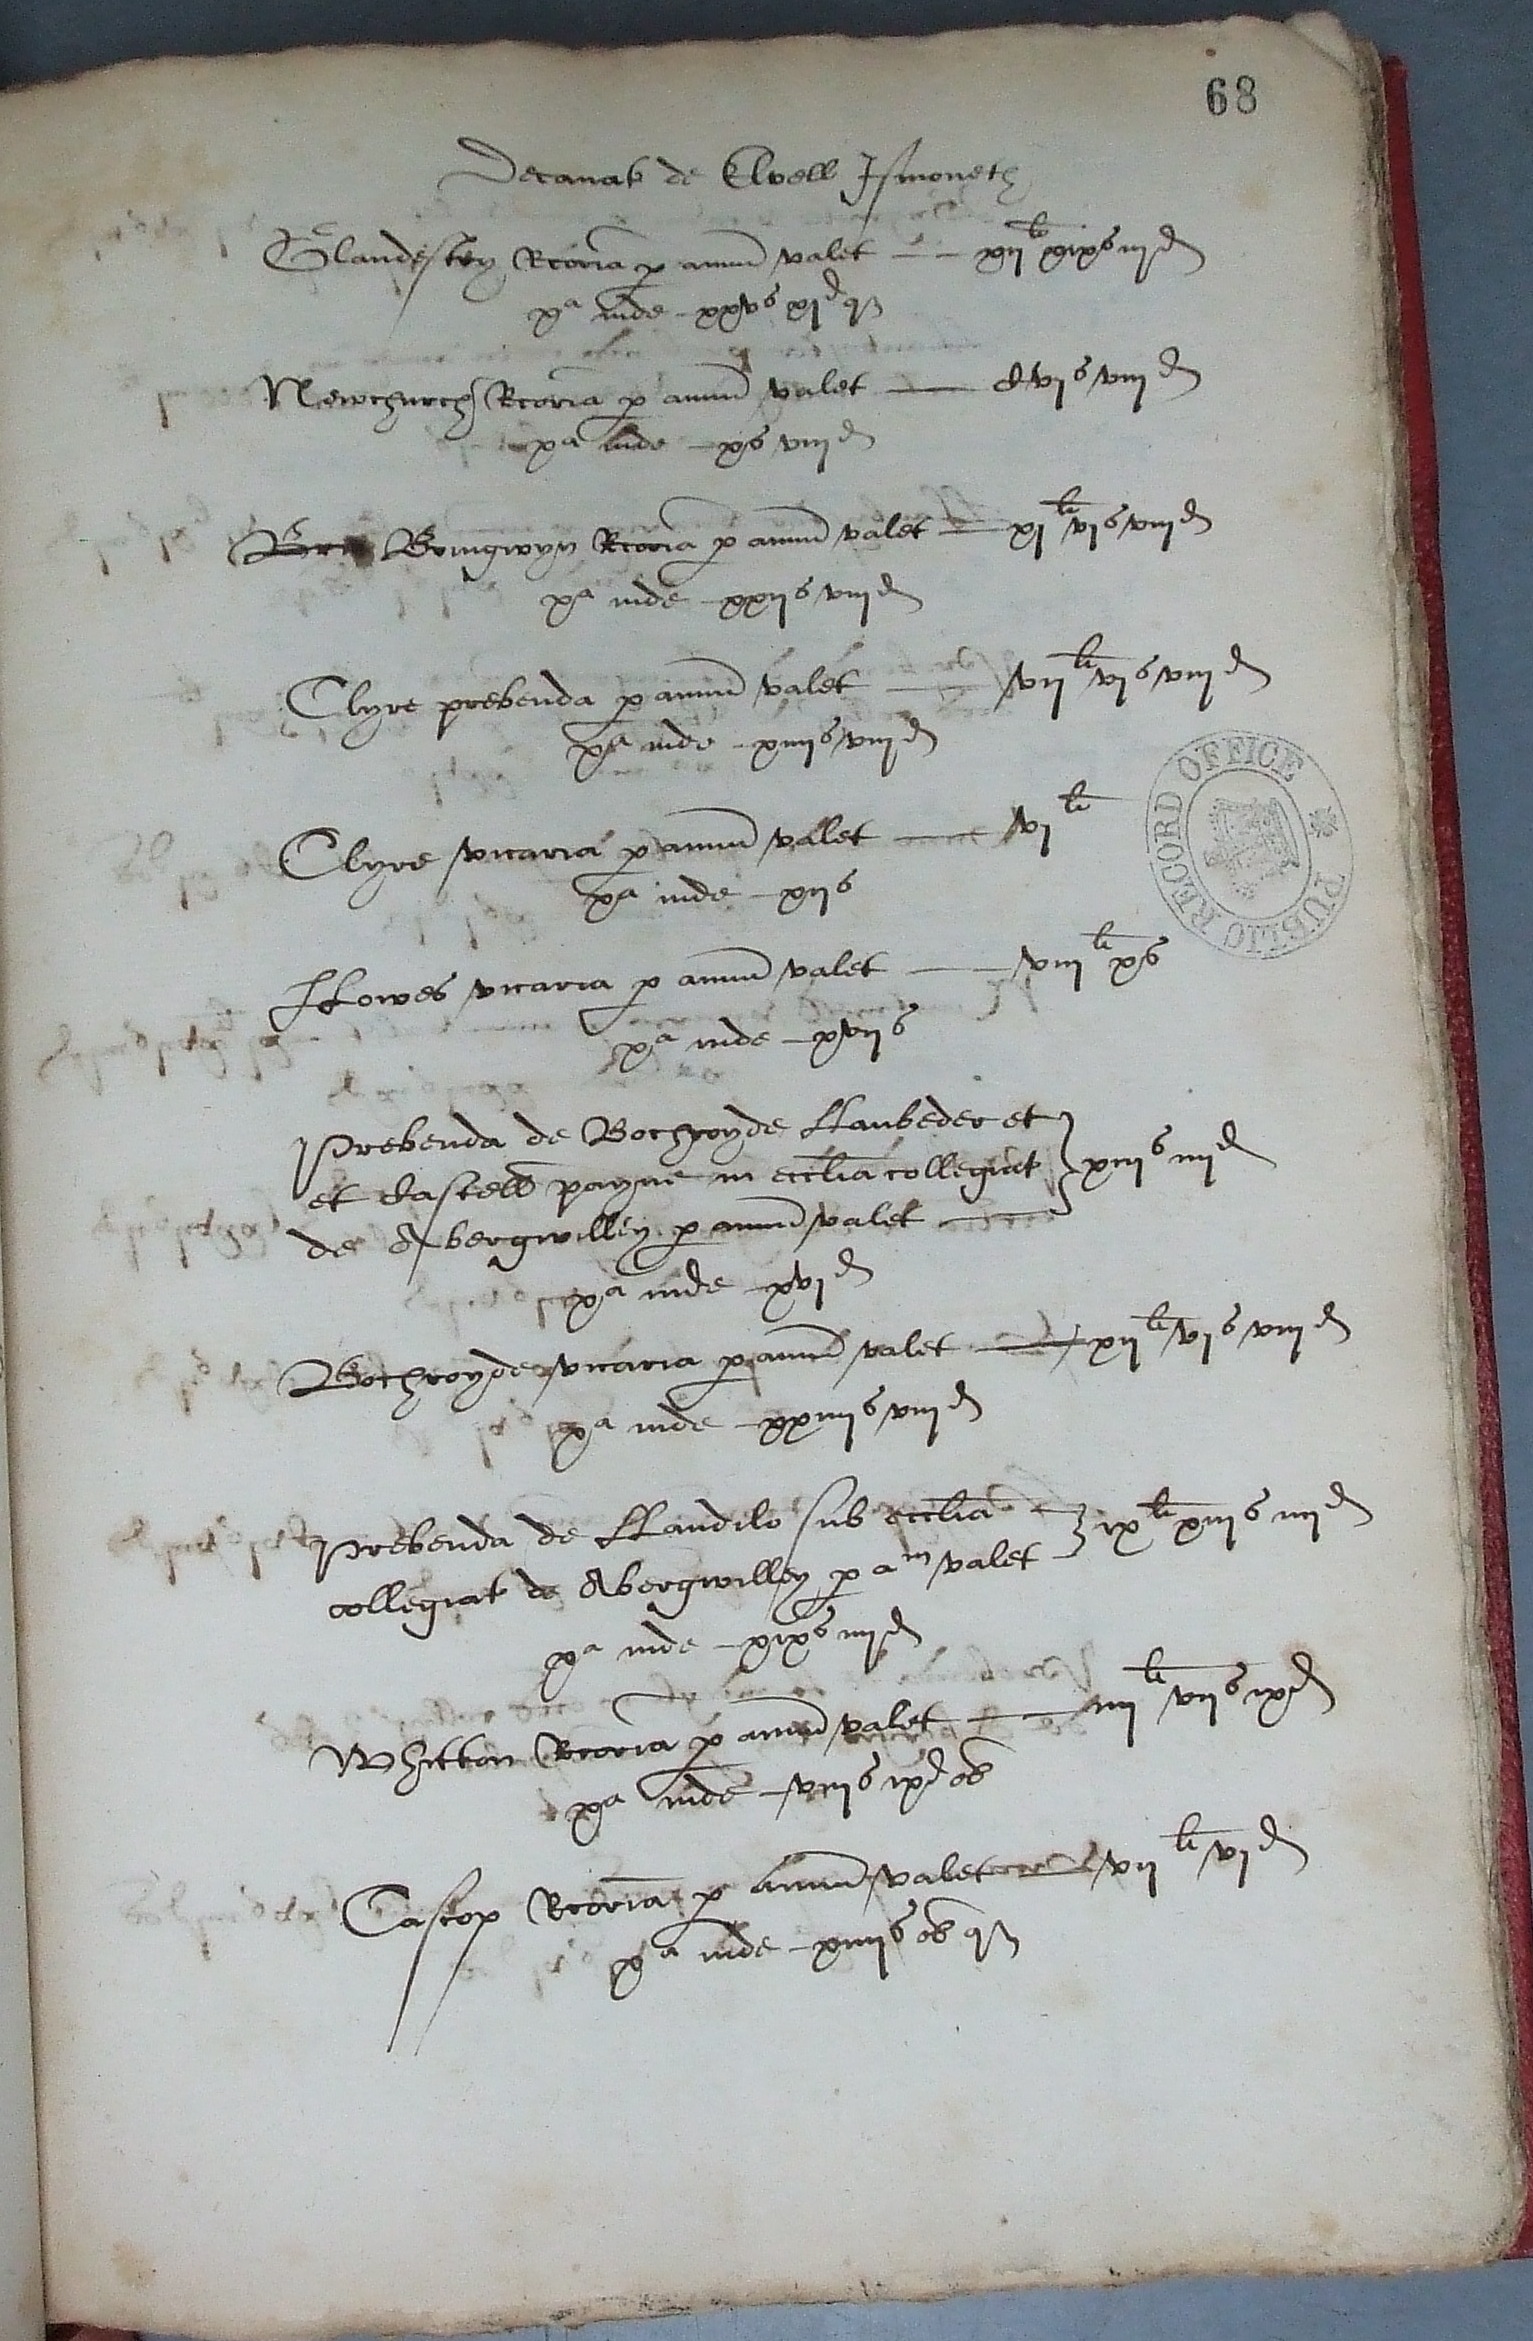 68
Decanat de Elvell Ismoneth
Glandestry Rcoria p annu valet — xij li xixs iijd
xa inde xxvs xjd q
Newchurch Rcoria p annu valet — Cvjs viijd
xa inde xs viijd
Bri Bringwyn Rcoria p annu valet — xj li vjs viijd
xa inde xxijs viijd
Clyre prebenda p annu valet — vij li vjs viijd
xa inde xiiijs viijd
Clyre vicaria p annu valet — vj li
xa inde xijs
llowes vicaria p annu valet — viij li xs
xa inde xvijs
Prebenda de Bochroyde llanbeder et
et Castell payne in ecclia collegiat } xiijs iiijd
de Abergwilley p annu valet
xa inde xvjd
Bochroyde vicaria p annu valet — xij li vjs viijd
xa inde xxiiijs viijd
Prebenda de llandilo sub ecclia } ix li xiijs iiijd
collegiat de Abergwilley p am valet
xa inde xixs iiijd
Whitton Rcoria p annu valet — iiij li vijs ixd
xa inde viijs ixd ob
Cascop Rcoria p annu valet — vij li vjd
xa inde xiiijs ob q
PUBLIC RECORD OFFICE